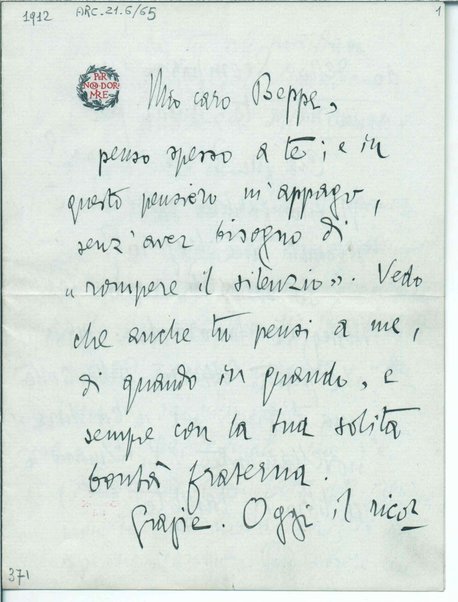 1912
ARC.21.6/65
1
PER
NON DOR
MIRE
Mio caro Beppe,
penso spesso a te; e in
questo pensiero m'appago,
senz'aver bisogno di
"rompere il silenzio". Vedo
che anche tu pensi a me,
di quando in quando, e
sempre con la tua solita
bontà fraterna.
Grazie. Oggi il ricor
371